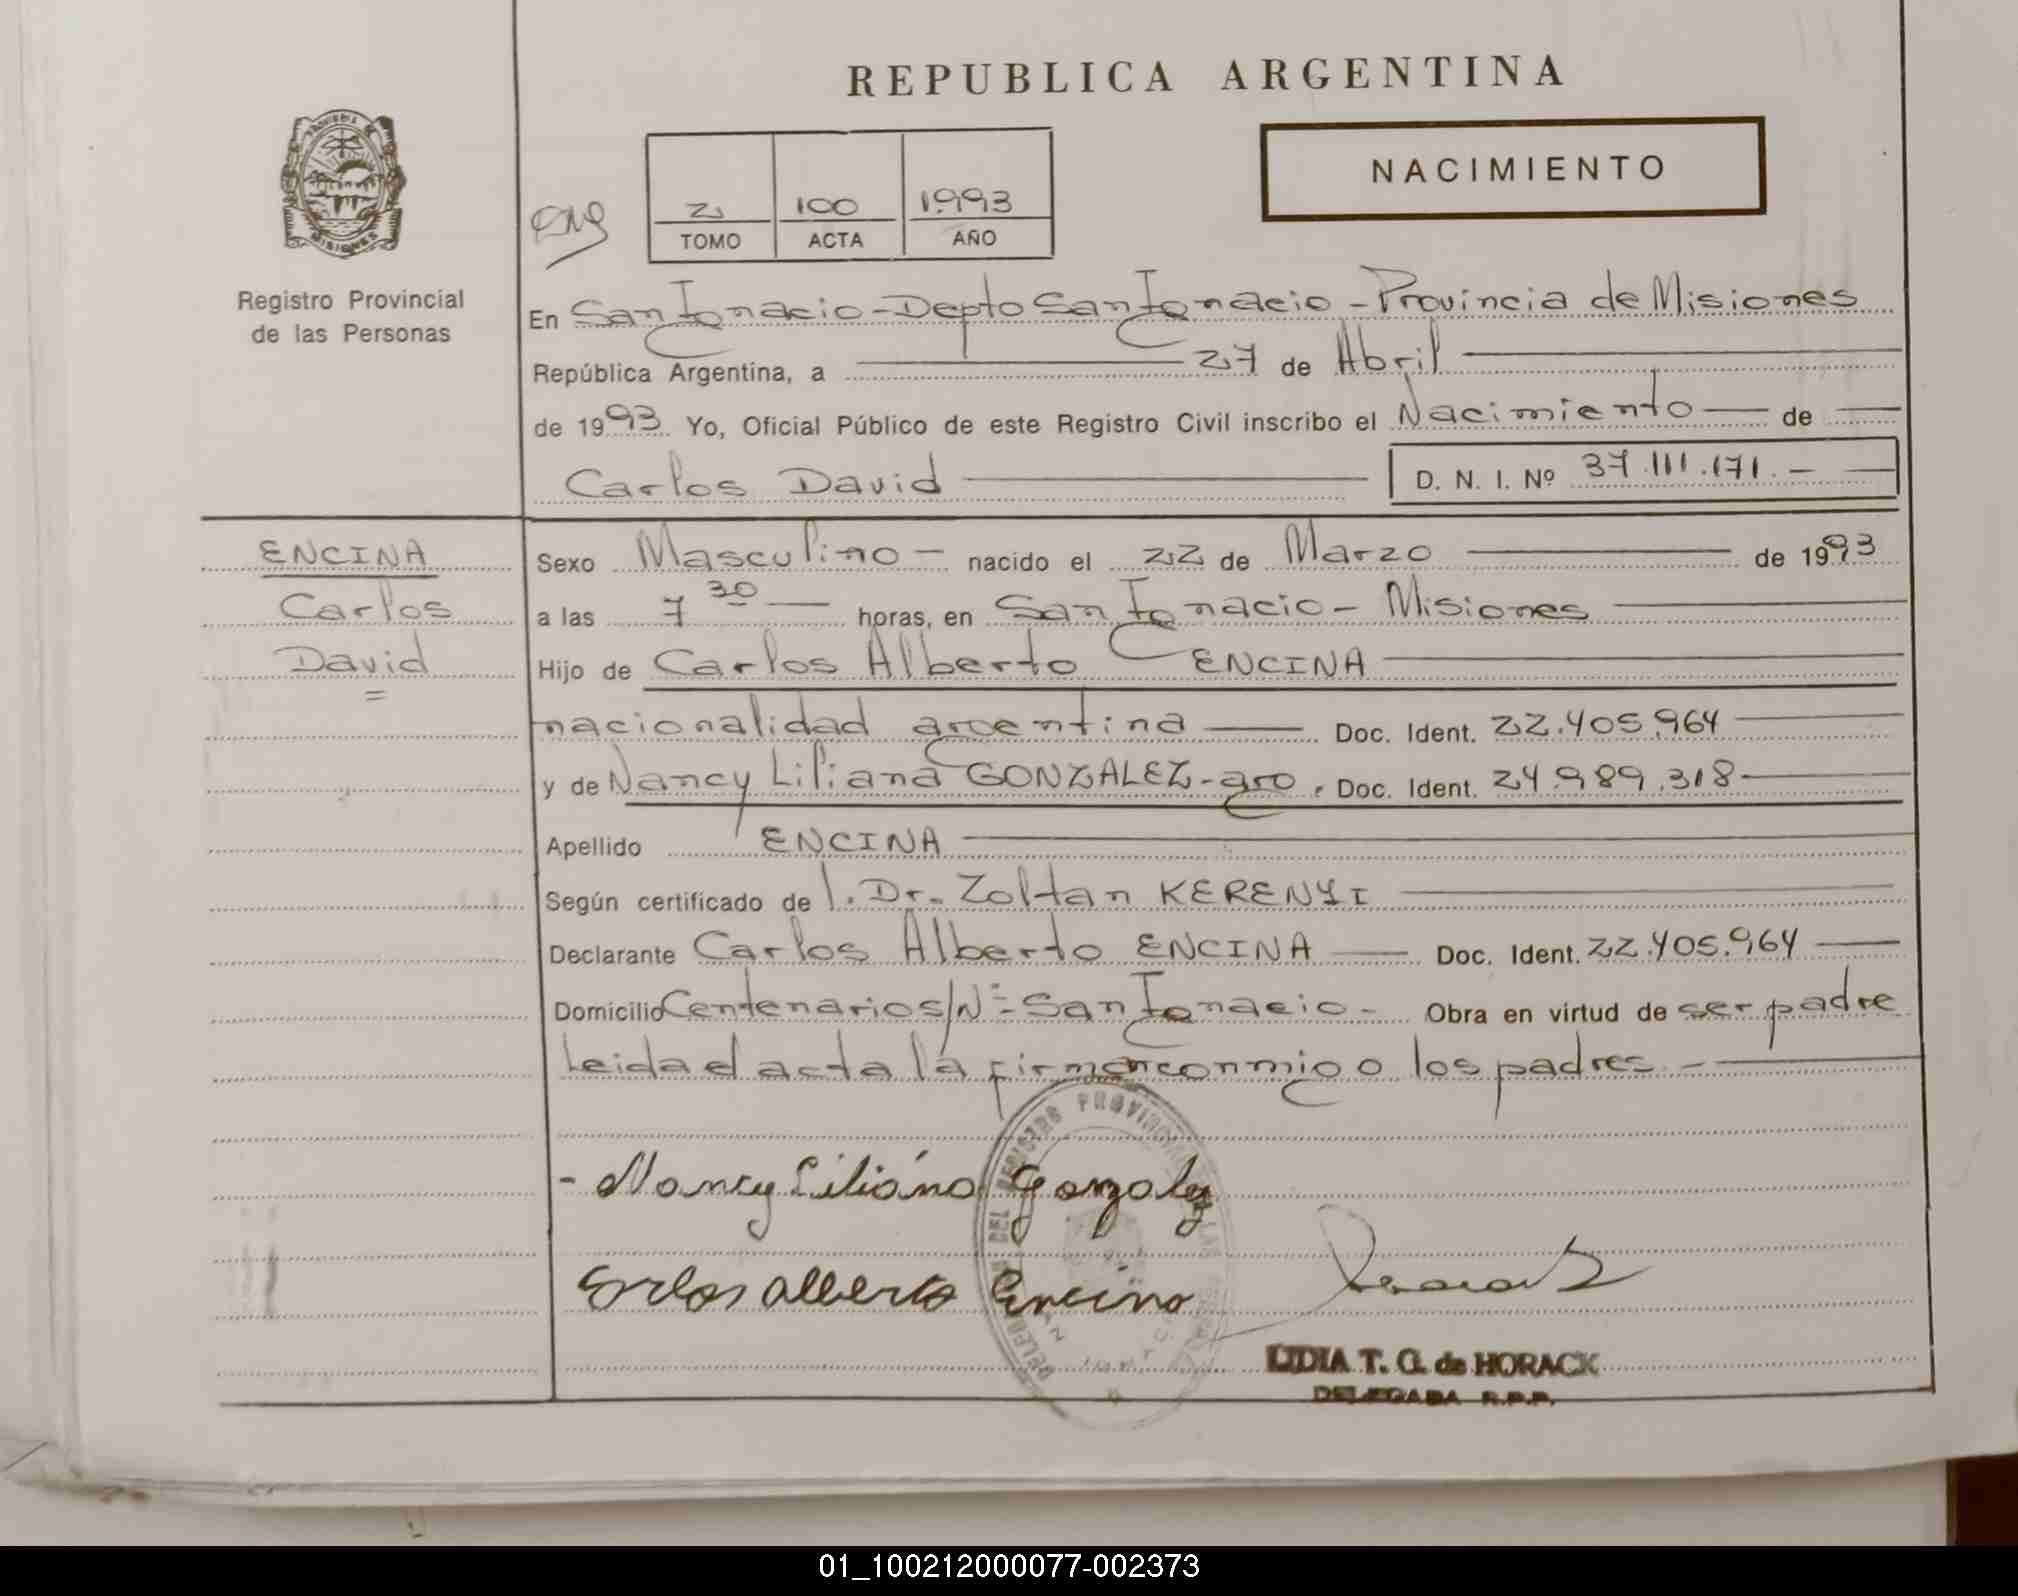 REPUBLICA ARGENTINA
NACIMIENTO
PROVINCIA DE
MISIONES
2 100 1993
TOMO ACTA AÑO
Registro Provincial
de las Personas
En San Ignacio - Depto San Ignacio - Provincia de Misiones
República Argentina, a 27 de Abril
de 1993 Yo, Oficial Público de este Registro Civil inscribo el Nacimiento de
Carlos David D. N. I. Nº 37.111.171.-
ENCINA
Carlos
David
=
Sexo Masculino - nacido el 22 de Marzo de 1993
a las 7 30 horas, en San Ignacio - Misiones
Hijo de Carlos Alberto ENCINA
nacionalidad argentina Doc. Ident. 22.405.964
y de Nancy Liliana GONZALEZ - arg. Doc. Ident. 24.989.318
Apellido ENCINA
Según certificado de l. Dr. Zoltan KERENYI
Declarante Carlos Alberto ENCINA Doc. Ident. 22.405.964
Domicilio Centenario S/Nº - San Ignacio - Obra en virtud de ser padre
Leida el acta la firman conmigo los padres. -
DELEGADA DEL REGISTRO PROVINCIAL LAS
- Nancy Liliána Gonzalez
Carlos Alberto Encina
LIDIA T. G. de HORACK
DELEGADA R.P.P.
01_100212000077-002373